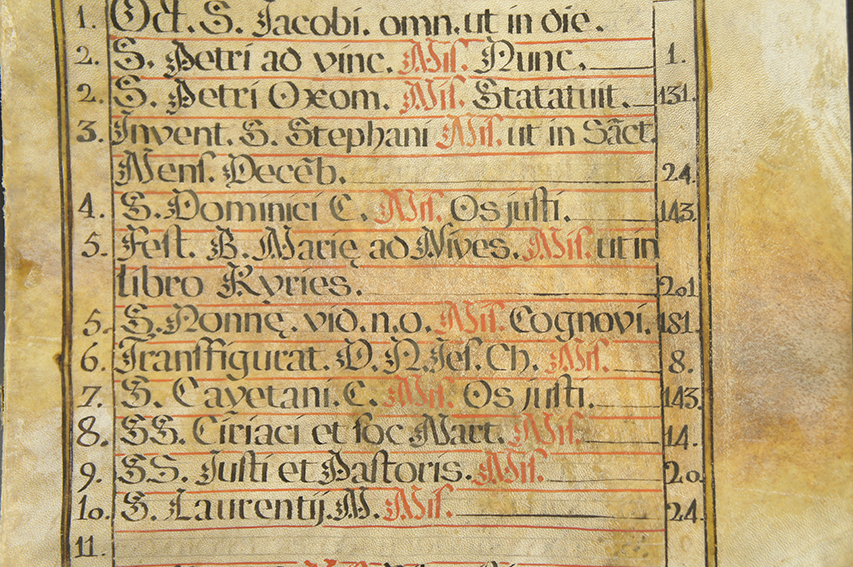 1. Oct. S. Jacobi. omn. ut in die.
2. S. Petri ad vinc. Mis. Nunc. 1.
2. S. Petri Oxom. Mis. Statatuit. 131.
3. Invent. S. Stephani Mis. ut in Sāct.
Mens. Decēb. 24.
4. S. Dominici C. Mis. Os justi. 143.
5. Fest. B. Marię ad Nives. Mis. ut in
libro Kyries. 201
5. S. Nonnę. vid. n. o. Mis. Cognovi. 181.
6. Transfigurat. D. N. Jes. Ch. Mis. 8.
7. S. Cayetani. C. Mis. Os justi. 143.
8. SS. Ciriaci et soc Mart. Mis. 14.
9. SS. Justi et Pastoris. Mis. 20.
10. S. Laurentij. M. Mis. 24.
11.